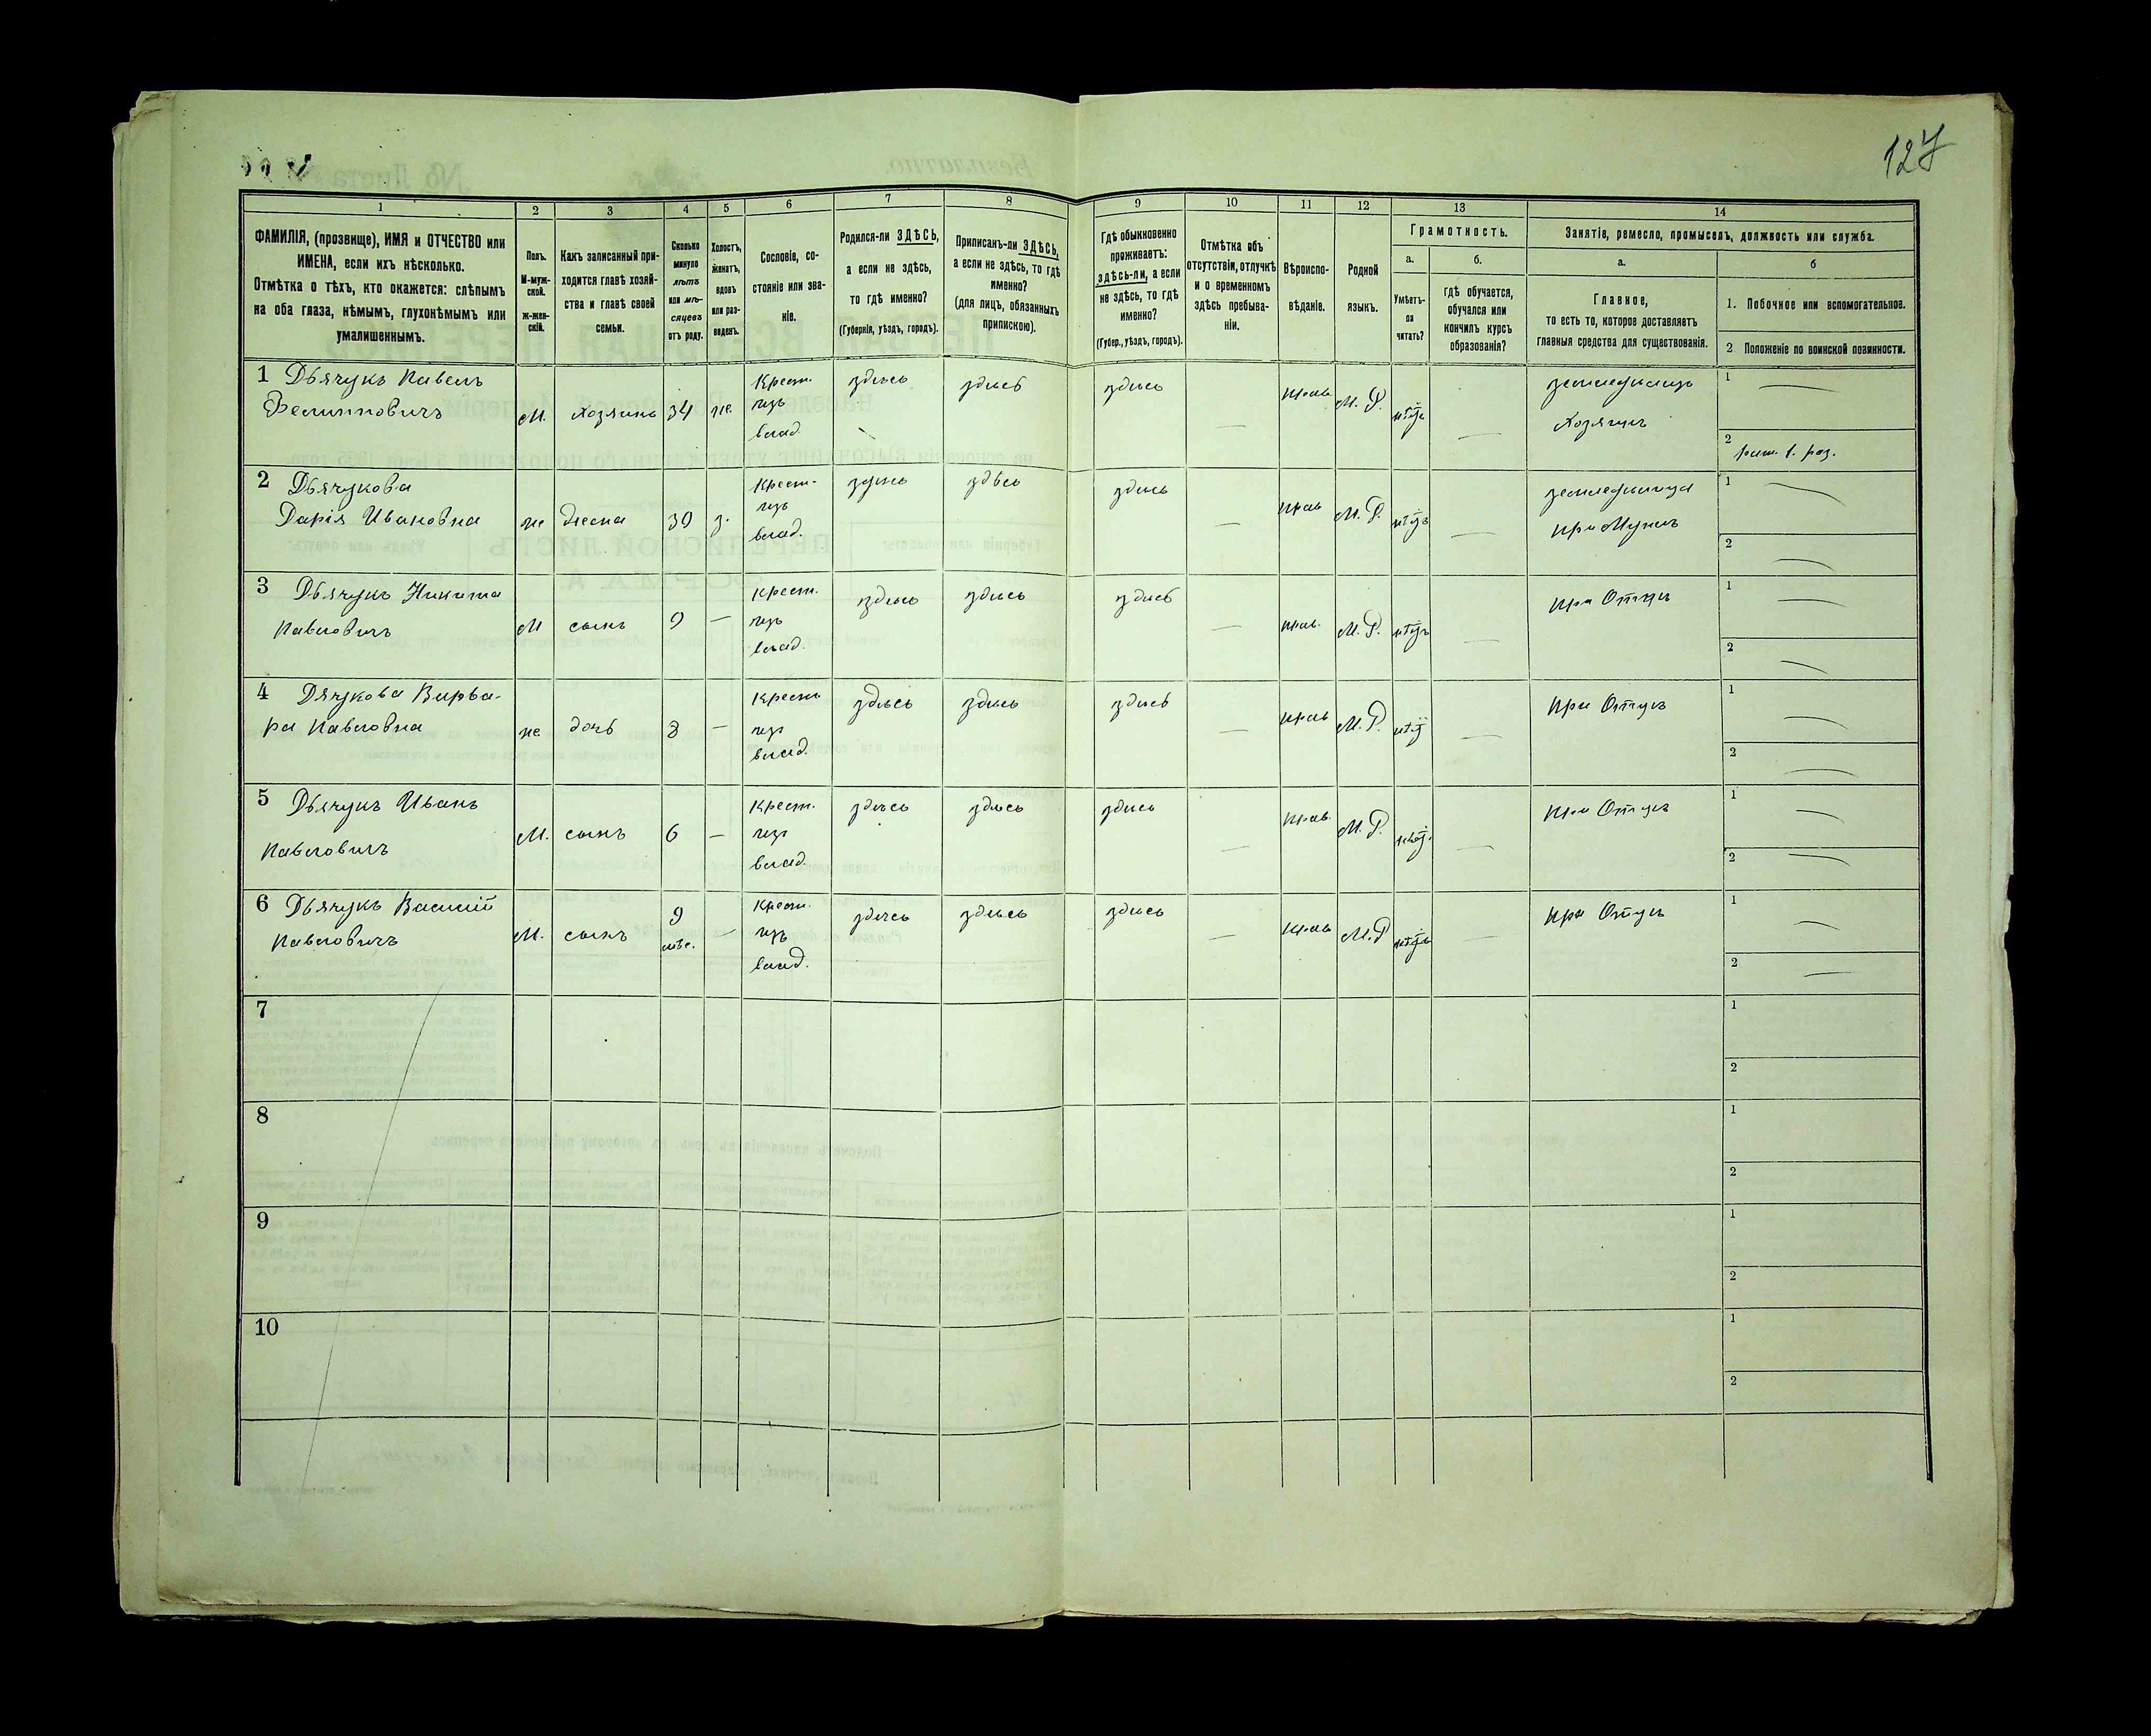 127
1 2 3 4 5 6 7 8 9 10 11 12 13 14
ФАМИЛІЯ, (прозвище), ИМЯ и ОТЧЕСТВО или
ИМЕНА, если ихъ нѣсколько.
Отмѣтка о тѣхъ, кто окажется: слѣпымъ
на оба глаза, нѣмымъ, глухонѣмымъ или
умалишеннымъ.
Полъ.
М-муж-
ской.
ж-жен-
скій.
Какъ записанный при-
ходится главѣ хозяй-
ства и главѣ своей
семьи.
Сколько
минуло
лѣтъ
или мѣ-
сяцевъ
отъ роду.
Холостъ,
женатъ,
вдовъ
или раз-
веденъ.
Сословіе, со-
стояніе или зва-
ніе.
Родился-ли ЗДѢСЬ,
а если не здѣсь,
то гдѣ именно?
(Губернія, уѣздъ, городъ).
Приписанъ-ли ЗДѢСЬ,
а если не здѣсь, то гдѣ
именно?
(для лицъ, обязанныхъ
припискою).
Гдѣ обыкновенно
проживаетъ:
здѣсь-ли, а если
не здѣсь, то гдѣ
именно?
(Губер., уѣздъ, городъ).
Отмѣтка объ
отсутствіи, отлучкѣ
и о временномъ
здѣсь пребыва-
ніи.
Вѣроиспо-
вѣданіе.
Родной
языкъ.
Грамотность.
а.
Умѣетъ-
ли
читать?
б.
гдѣ обучается,
обучался или
кончилъ курсъ
образованія?
Занятіе, ремесло, промыселъ, должность или служба.
а.
Главное,
то есть то, которое доставляетъ
главныя средства для существованія.
б
1. Побочное или вспомогательное.
2 Положеніе по воинской повинности.
1 Дьячукъ Павелъ
Филипповичъ
М. хозяинъ 34 же.
Крест.
изъ
влад.
здѣсь здѣсь здѣсь — прав М. Р. нѣтъ —
земледѣлецъ
Хозяинъ
1 —
2 ратн. 1. раз.
2 Дьячукова
Дарія Ивановна
же жена 30 з.
Крест.
изъ
влад.
здѣсь здѣсь здѣсь — прав М. Р. нѣтъ —
земледѣлица
при Мужѣ
1 —
2 —
3 Дьячукъ Никита
Павловичъ
М сынъ 9 —
Крест.
изъ
влад.
здѣсь здѣсь здѣсь — прав. М. Р. нѣтъ —
при Отцѣ
1 —
2 —
4 Дячукова Варва-
ра Павловна
же дочь 8 —
Крест
изъ
влад.
здѣсь здѣсь здѣсь — прав М. Р. нѣтъ —
при Отцѣ
1 —
2 —
5 Дьячукъ Иванъ
Павловичъ
М. сынъ 6 —
Крест.
изъ
влад.
здѣсь здѣсь здѣсь — прав. М. Р. нѣтъ —
при Отцѣ
1 —
2 —
6 Дьячукъ Василій
Павловичъ
М. сынъ 9 мѣс. —
Крест.
изъ
влад.
здѣсь здѣсь здѣсь — прав М. Р нѣтъ —
при Отцѣ
1 —
2 —
7
1
2
8
1
2
9
1
2
10
1
2